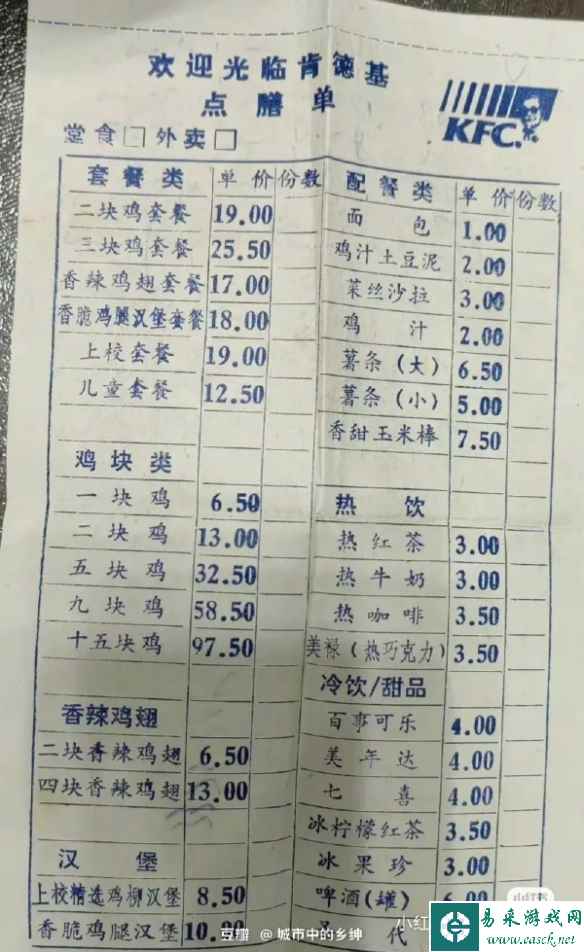 欢迎光临肯德基
点膳单
KFC.
堂食□外卖□
套餐类 单价 份数
二块鸡套餐 19.00
三块鸡套餐 25.50
香辣鸡翅套餐 17.00
香脆鸡腿汉堡套餐 18.00
上校套餐 19.00
儿童套餐 12.50
鸡块类
一块鸡 6.50
二块鸡 13.00
五块鸡 32.50
九块鸡 58.50
十五块鸡 97.50
香辣鸡翅
二块香辣鸡翅 6.50
四块香辣鸡翅 13.00
汉堡
上校精选鸡柳汉堡 8.50
香脆鸡腿汉堡
配餐类 单价 份数
面包 1.00
鸡汁土豆泥 2.00
菜丝沙拉 3.00
鸡汁 2.00
薯条(大) 6.50
薯条(小) 5.00
香甜玉米棒 7.50
热饮
热红茶 3.00
热牛奶 3.00
热咖啡 3.50
美禄(热巧克力) 3.50
冷饮/甜品
百事可乐 4.00
美年达 4.00
七喜 4.00
冰柠檬红茶 3.50
冰果珍 3.00
啤酒(罐)
豆瓣 @ 城市中的乡绅
小红
易采游戏网
easck.com